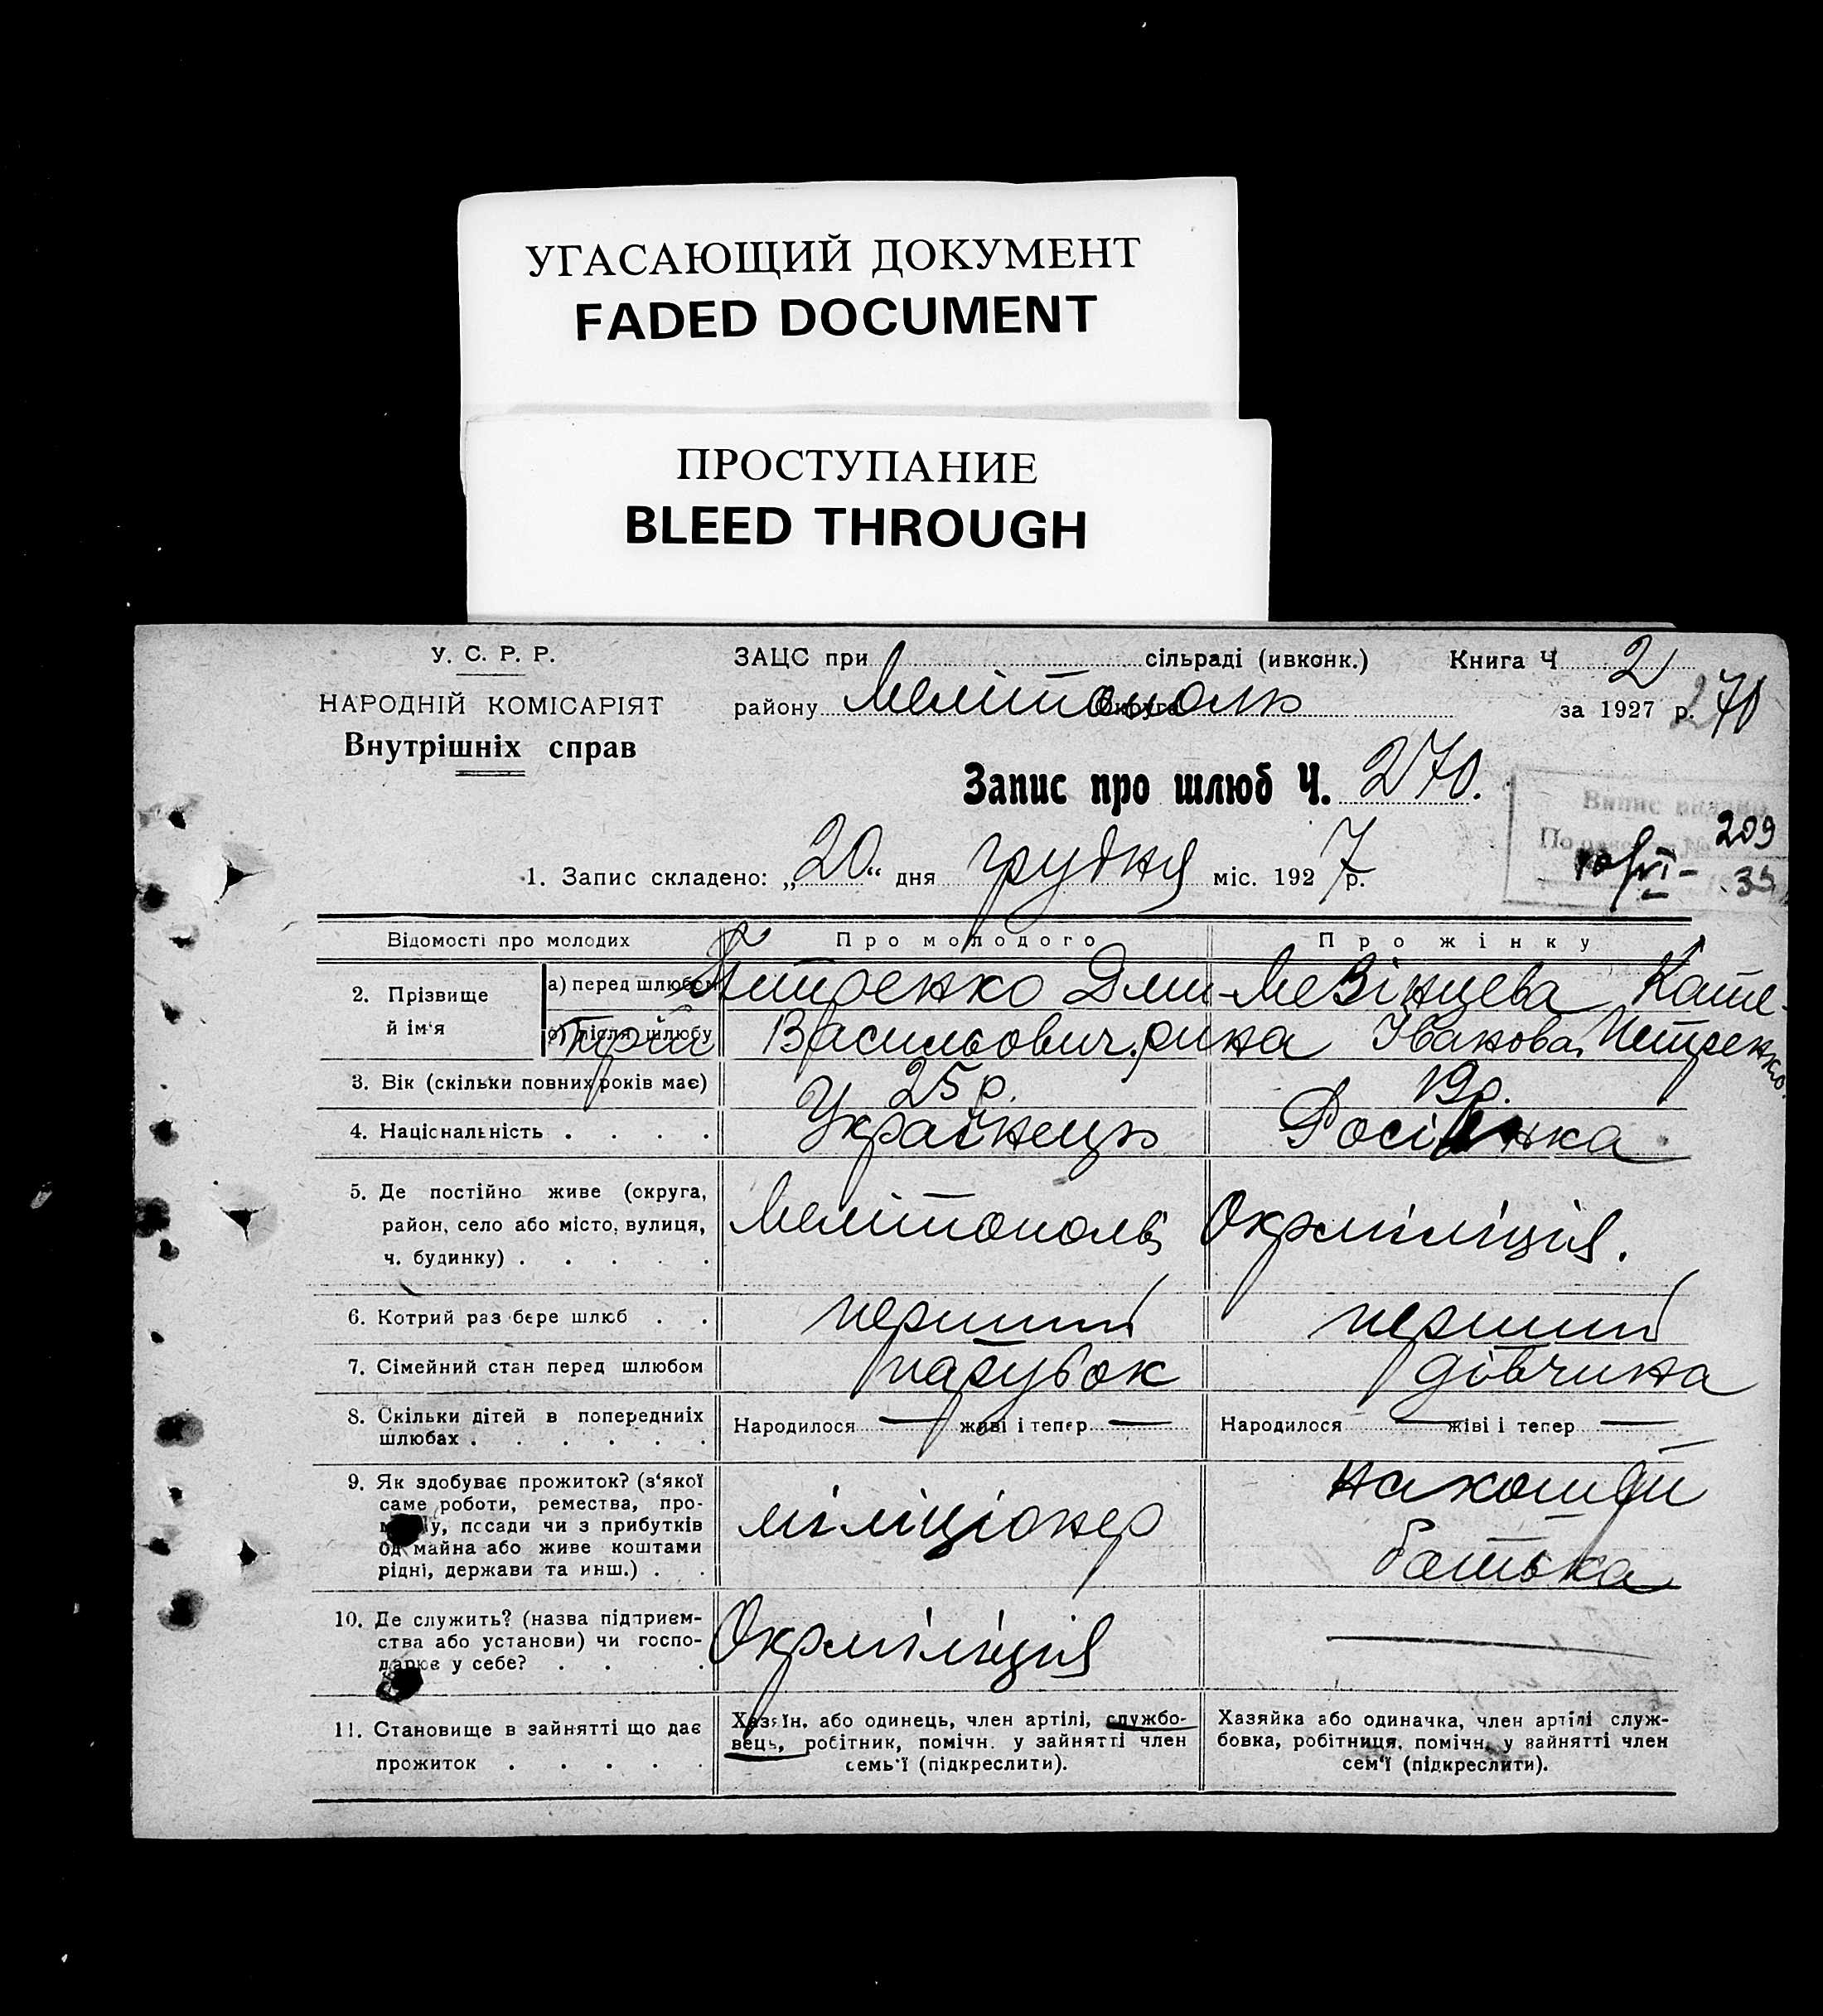 УГАСАЮЩИЙ ДОКУМЕНТ
FADED DOCUMENT
ПРОСТУПАНИЕ
BLEED THROUGH
У. С. Р. Р.
НАРОДНІЙ КОМІСАРІЯТ
Внутрішніх справ
ЗАЦС при сільраді (ивконк.) Книга Ч 2
району Мелітополь округа за 1927 р. 270
Запис про шлюб Ч. 270.
Випис видано
209
10/VI- 35
1. Запис складено: „20“ дня грудня міс. 1927 р.
Відомості про молодих Про молодого Про жінку
2. Прізвище й ім‘я
а) перед шлюбом Петренко Дми- Катe-
б) після шлюбу трій Васильович. рина Іванова. Петренко.
3. Вік (скільки повних років має) 25 р. 19 р.
4. Націснальність . . . . Українець Росіянка
5. Де постійно живе (округа,
район, село або місто, вулиця,
ч. будинку) . . . . .
Мелітополь Окрміліція.
6. Котрий раз бере шлюб . . перший перший
7. Сімейний стан перед шлюбом парубок дівчина
8. Скільки дітей в попередниіх
шлюбах . . . . . .
Народилося — живі і тепер — Народилося — жіві і тепер —
9. Як здобуває прожиток? (з‘якої
саме роботи, ремества, про-
у, посади чи з прибутків
од майна або живе коштами
рідні, держави та инш.) . .
міліціонер
на кошти
батька
10. Де служить? (назва підприєм-
ства або установи) чи госпо-
дарює у себе? . . . .
Окрміліція —
11. Становище в зайнятті що дає
прожиток . . . . .
Хазяїн, або одинець, член артілі, службо-
вець, робітник, помічн. у зайнятті член
семь‘ї (підкреслити).
Хазяйка або одиначка, член артілі служ-
бовка, робітниця, помічн. у зайнятті член
сем‘ї (підкреслити).